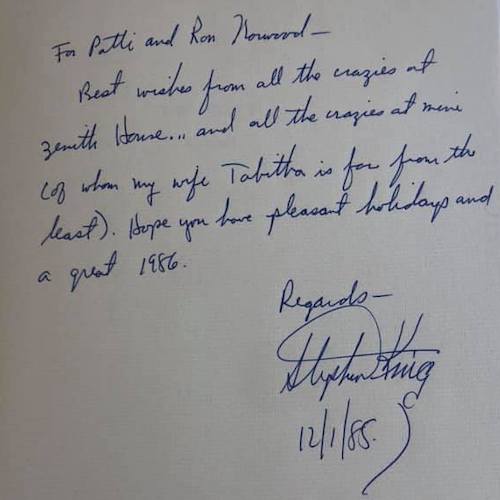 For Patti and Ron Norwood—
Best wishes from all the crazies at
Zenith House... and all the crazies at mine
(of whom my wife Tabitha is far from the
least). Hope you have pleasant holidays and
a great 1986.
Regards—
Stephen King
12/1/85.